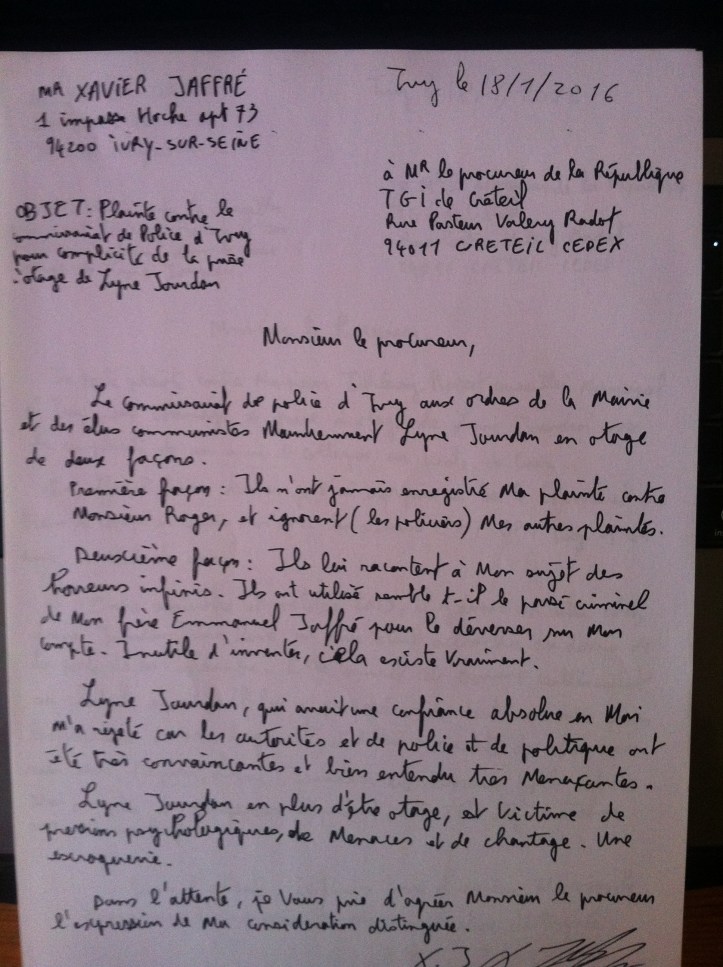 MR XAVIER JAFFRÉ
1 impasse Hoche apt 73
94200 IVRY-SUR-SEINE
Ivry le 18/1/2016
à MR le procureur de la République
TGI de Créteil
Rue Pasteur Valery Radot
94011 CRETEIL CEDEX
OBJET: Plainte contre le
commissariat de Police d'Ivry
pour complicité de la prise
d'otage de Lyne Jourdan
Monsieur le procureur,
Le commissariat de police d'Ivry aux ordres de la Mairie
et des élus communistes Maintiennent Lyne Jourdan en otage
de deux façons.
Première façon : Ils n'ont jamais enregistré Ma plainte contre
Monsieur Roger, et ignorent (les policiers) Mes autres plaintes.
Deuxième façon : Ils lui racontent à Mon sujet des
horreurs infinis. Ils ont utilisé semble t-il le passé criminel
de Mon frère Emmanuel Jaffré pour le déverser sur Mon
compte. Inutile d'inventer, cela existe Vraiment.
Lyne Jourdan, qui avait une confiance absolue en Moi
m'a rejeté car les autorités et de police et de politique ont
été très convaincantes et bien entendu très Menaxantes.
Lyne Jourdan en plus d'être otage, est Victime de
pressions psychologiques, de Menaces et de chantage. Une
escroquerie.
Dans l'attente, je Vous prie d'agréer Monsieur le procureur
l'expression de Ma considération distinguée.
X. J